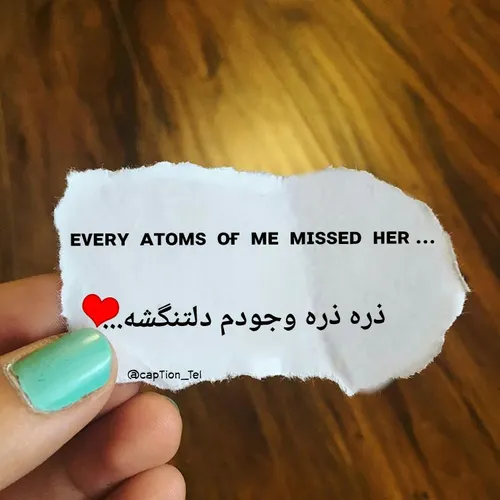 EVERY ATOMS OF ME MISSED HER ...
ذره ذره وجودم دلتنگشه...❤
@capTion_Tel